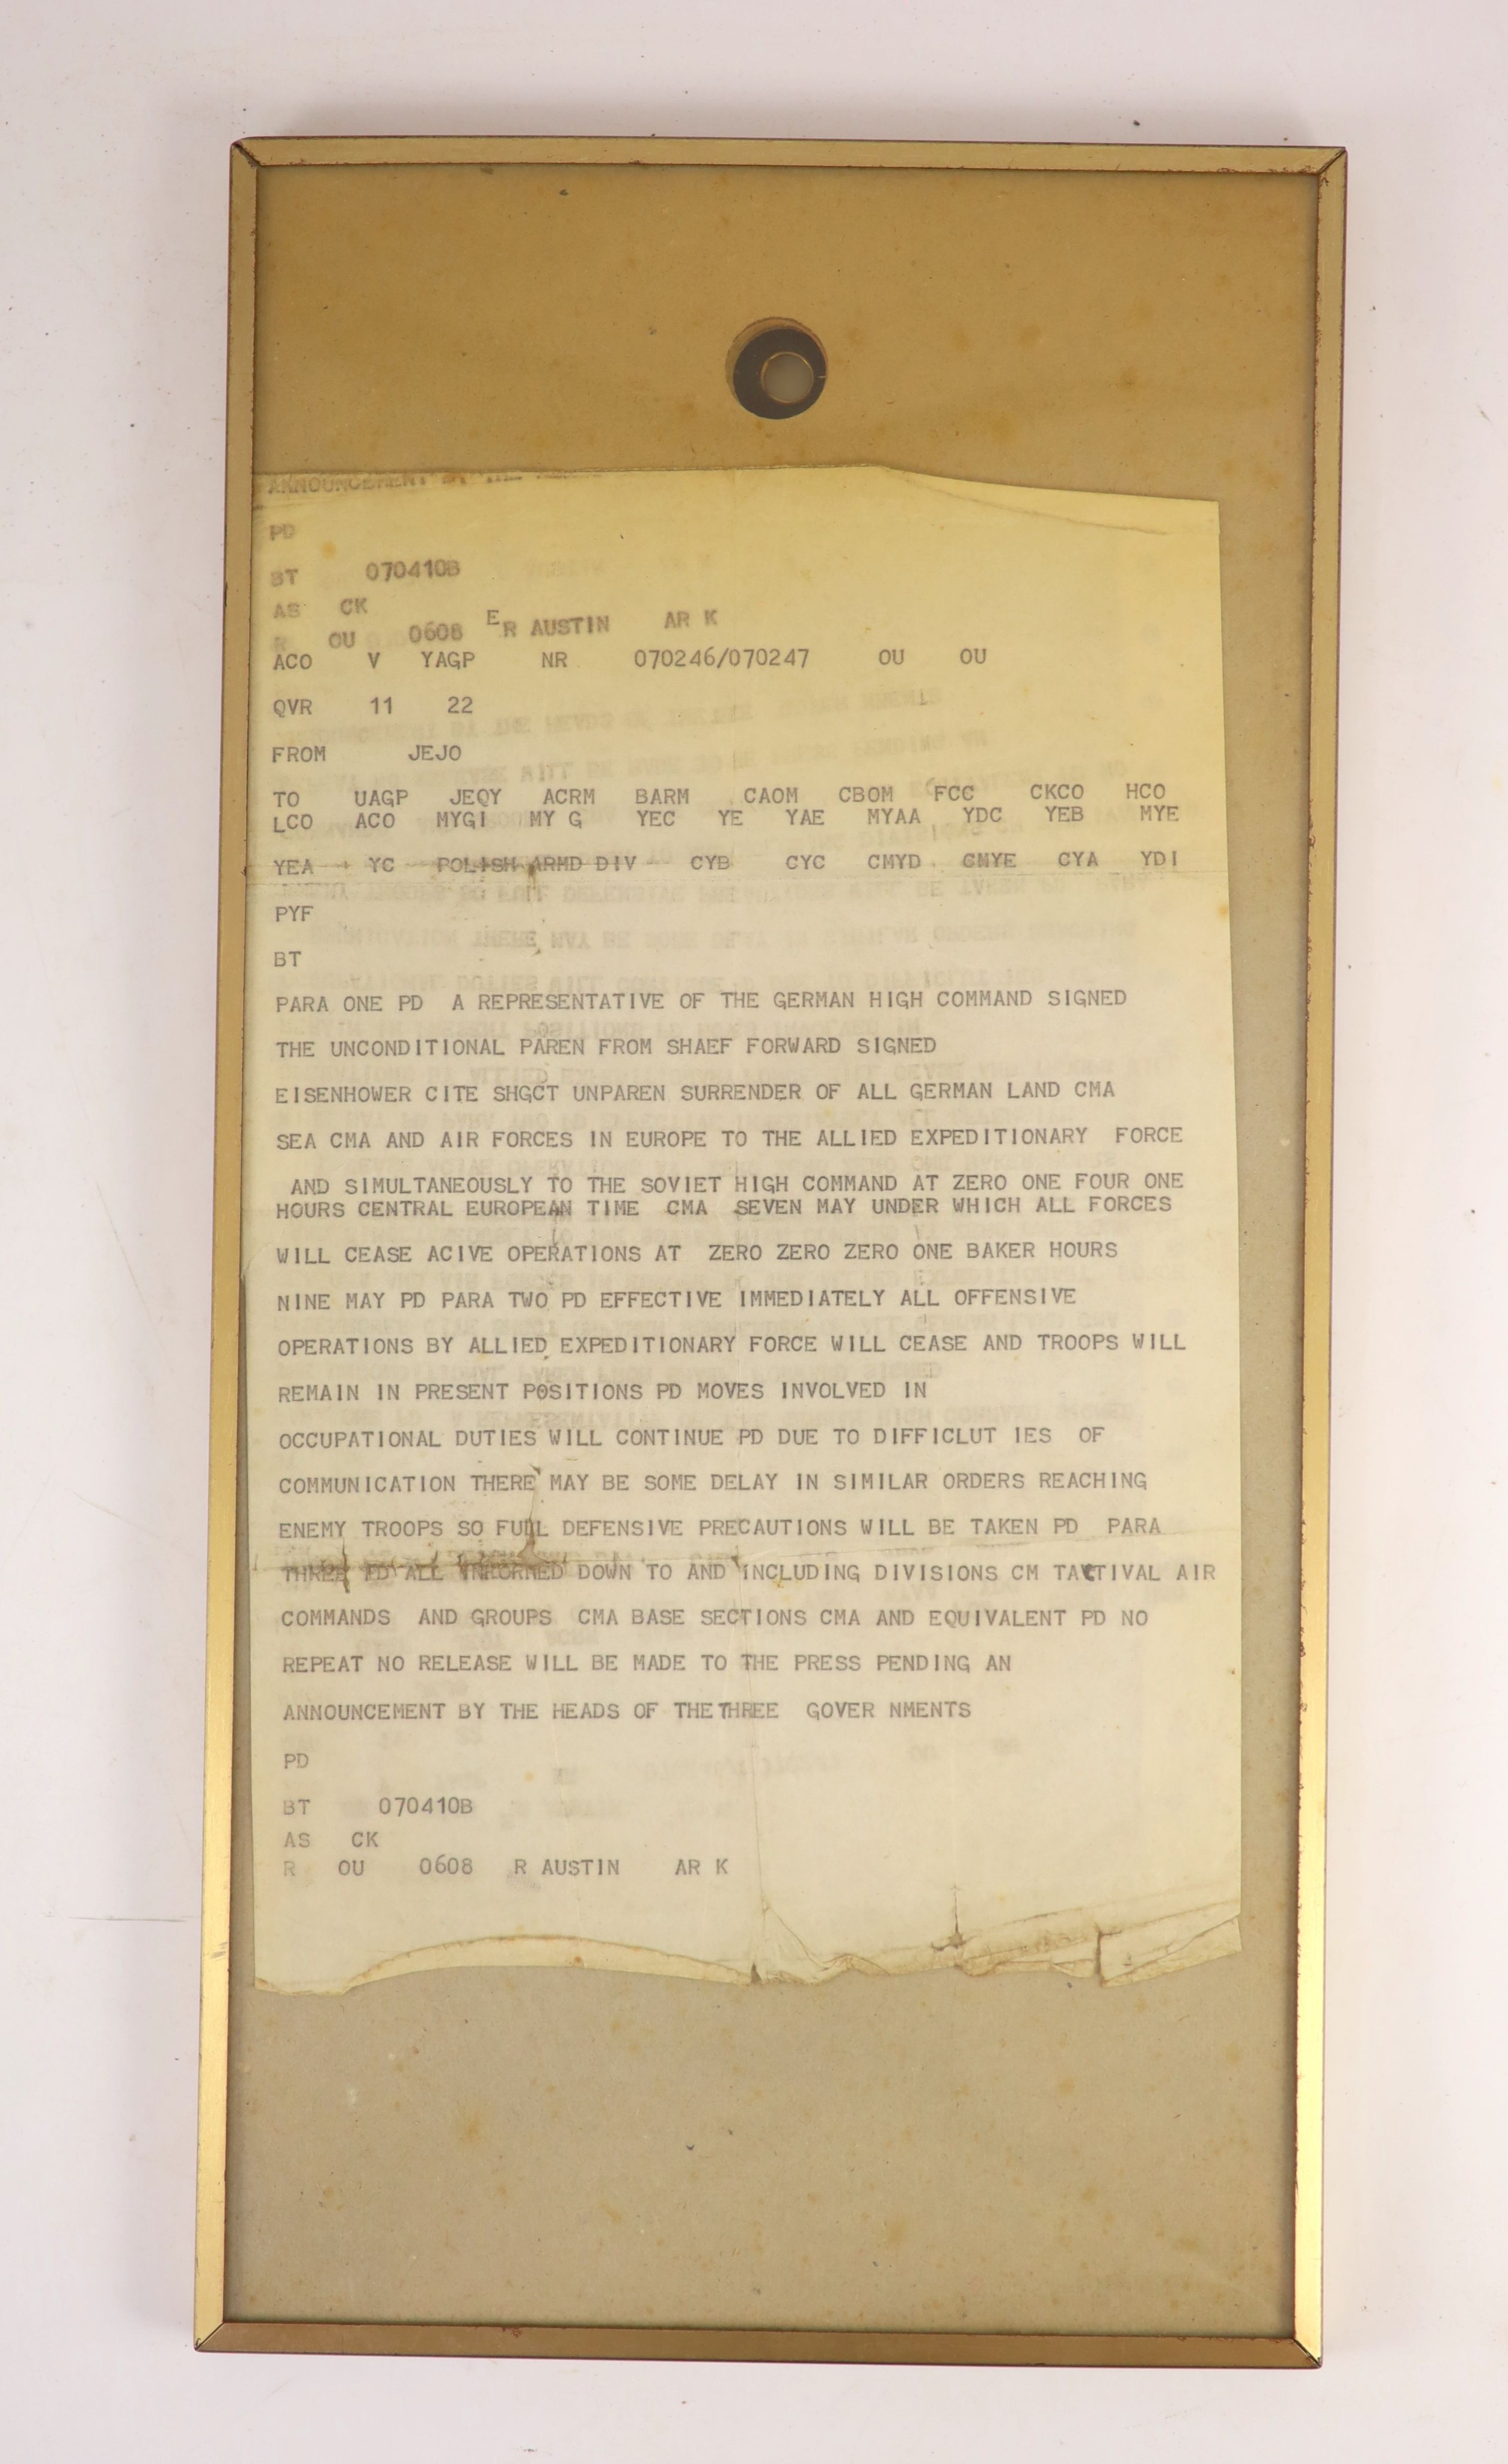 ANNOUNCEMENT BY THE
PD
BT 070410B
AS CK
R OU 0608 ER AUSTIN AR K
ACO V YAGP NR 070246/070247 OU OU
QVR 11 22
FROM JEJO
TO UAGP JEQY ACRM BARM CAOM CBOM FCC CKCO HCO
LCO ACO MYGI MY G YEC YE YAE MYAA YDC YEB MYE
YEA YC POLISH ARMD DIV CYB CYC CMYD CMYE CYA YDI
PYF
BT
PARA ONE PD A REPRESENTATIVE OF THE GERMAN HIGH COMMAND SIGNED
THE UNCONDITIONAL PAREN FROM SHAEF FORWARD SIGNED
EISENHOWER CITE SHGCT UNPAREN SURRENDER OF ALL GERMAN LAND CMA
SEA CMA AND AIR FORCES IN EUROPE TO THE ALLIED EXPEDITIONARY FORCE
AND SIMULTANEOUSLY TO THE SOVIET HIGH COMMAND AT ZERO ONE FOUR ONE
HOURS CENTRAL EUROPEAN TIME CMA SEVEN MAY UNDER WHICH ALL FORCES
WILL CEASE ACIVE OPERATIONS AT ZERO ZERO ZERO ONE BAKER HOURS
NINE MAY PD PARA TWO PD EFFECTIVE IMMEDIATELY ALL OFFENSIVE
OPERATIONS BY ALLIED EXPEDITIONARY FORCE WILL CEASE AND TROOPS WILL
REMAIN IN PRESENT POSITIONS PD MOVES INVOLVED IN
OCCUPATIONAL DUTIES WILL CONTINUE PD DUE TO DIFFICLUT IES OF
COMMUNICATION THERE MAY BE SOME DELAY IN SIMILAR ORDERS REACHING
ENEMY TROOPS SO FULL DEFENSIVE PRECAUTIONS WILL BE TAKEN PD PARA
THREE PD ALL INFORMED DOWN TO AND INCLUDING DIVISIONS CM TACTIVAL AIR
COMMANDS AND GROUPS CMA BASE SECTIONS CMA AND EQUIVALENT PD NO
REPEAT NO RELEASE WILL BE MADE TO THE PRESS PENDING AN
ANNOUNCEMENT BY THE HEADS OF THE THREE GOVER NMENTS
PD
BT 070410B
AS CK
R OU 0608 R AUSTIN AR K